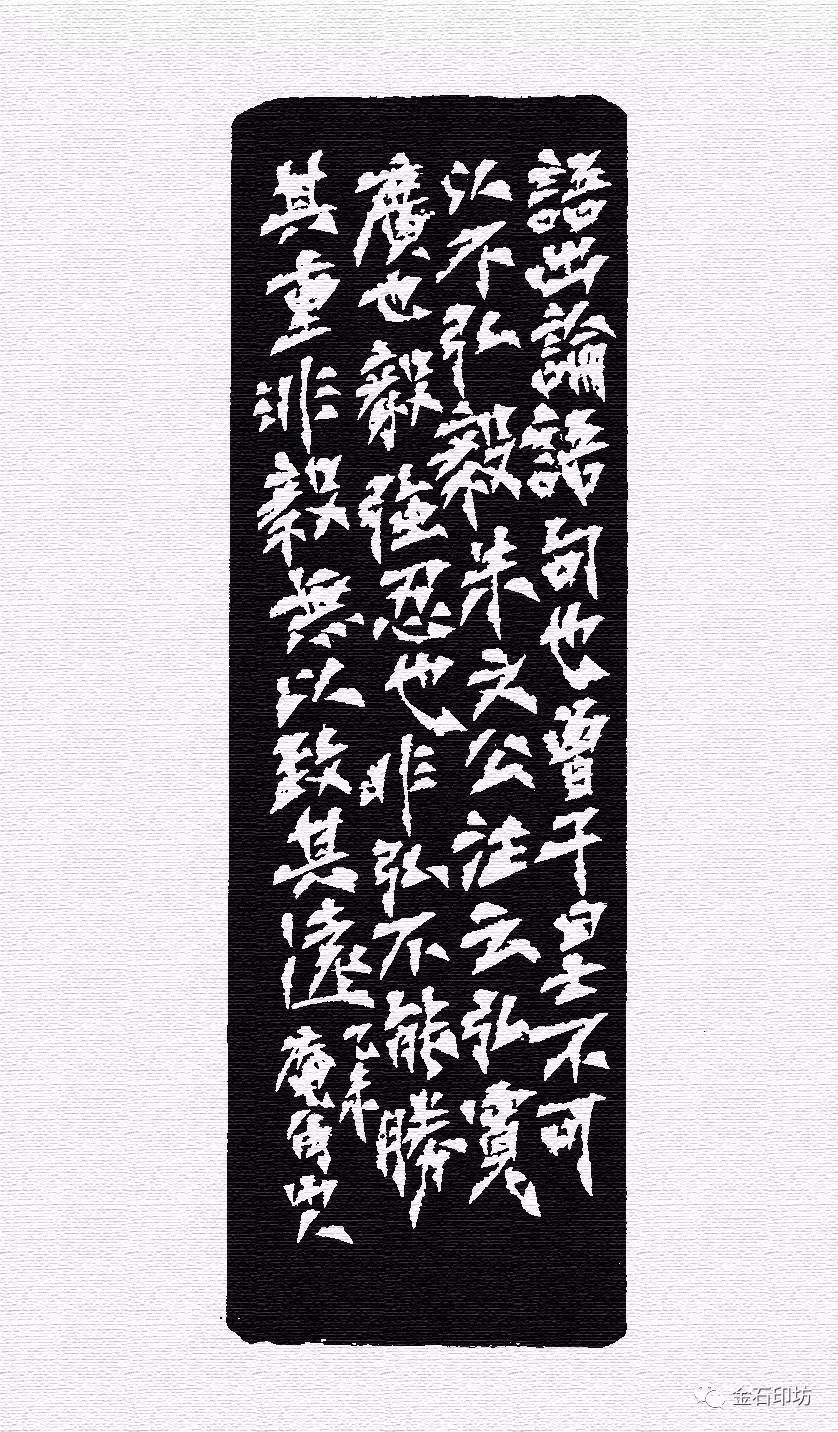 語出論語句也曾子曰士不可
以不弘毅朱文公注云弘寬
廣也毅強忍也非弘不能勝
其重非毅無以致其遠
乙未
庵
金石印坊